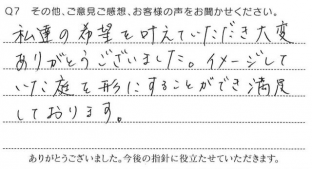 Q7 その他、ご意見ご感想、お客様の声をお聞かせください。
私達の希望を叶えていただき大変
ありがとうございました。イメージして
いた庭を形にすることができ満足
しております。
ありがとうございました。今後の指針に役立たせていただきます。